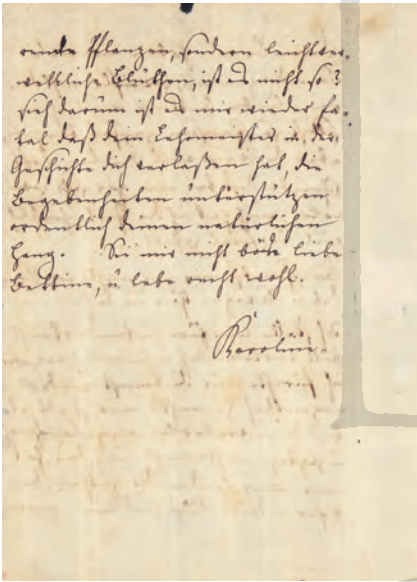 rende Pflanzen, sondern leicht ver-
welkliche Blüthen, ist es nicht so?
sieh darum ist es mir wieder fa-
tal daß dein Lehrmeister in der
Geschichte dich verlaßen hat, die
Begebenheiten unterstützen
ordentlich deinen natürlichen
Hang. Sei mir nicht böse liebe
Bettine, u lebe recht wohl.
Karoline